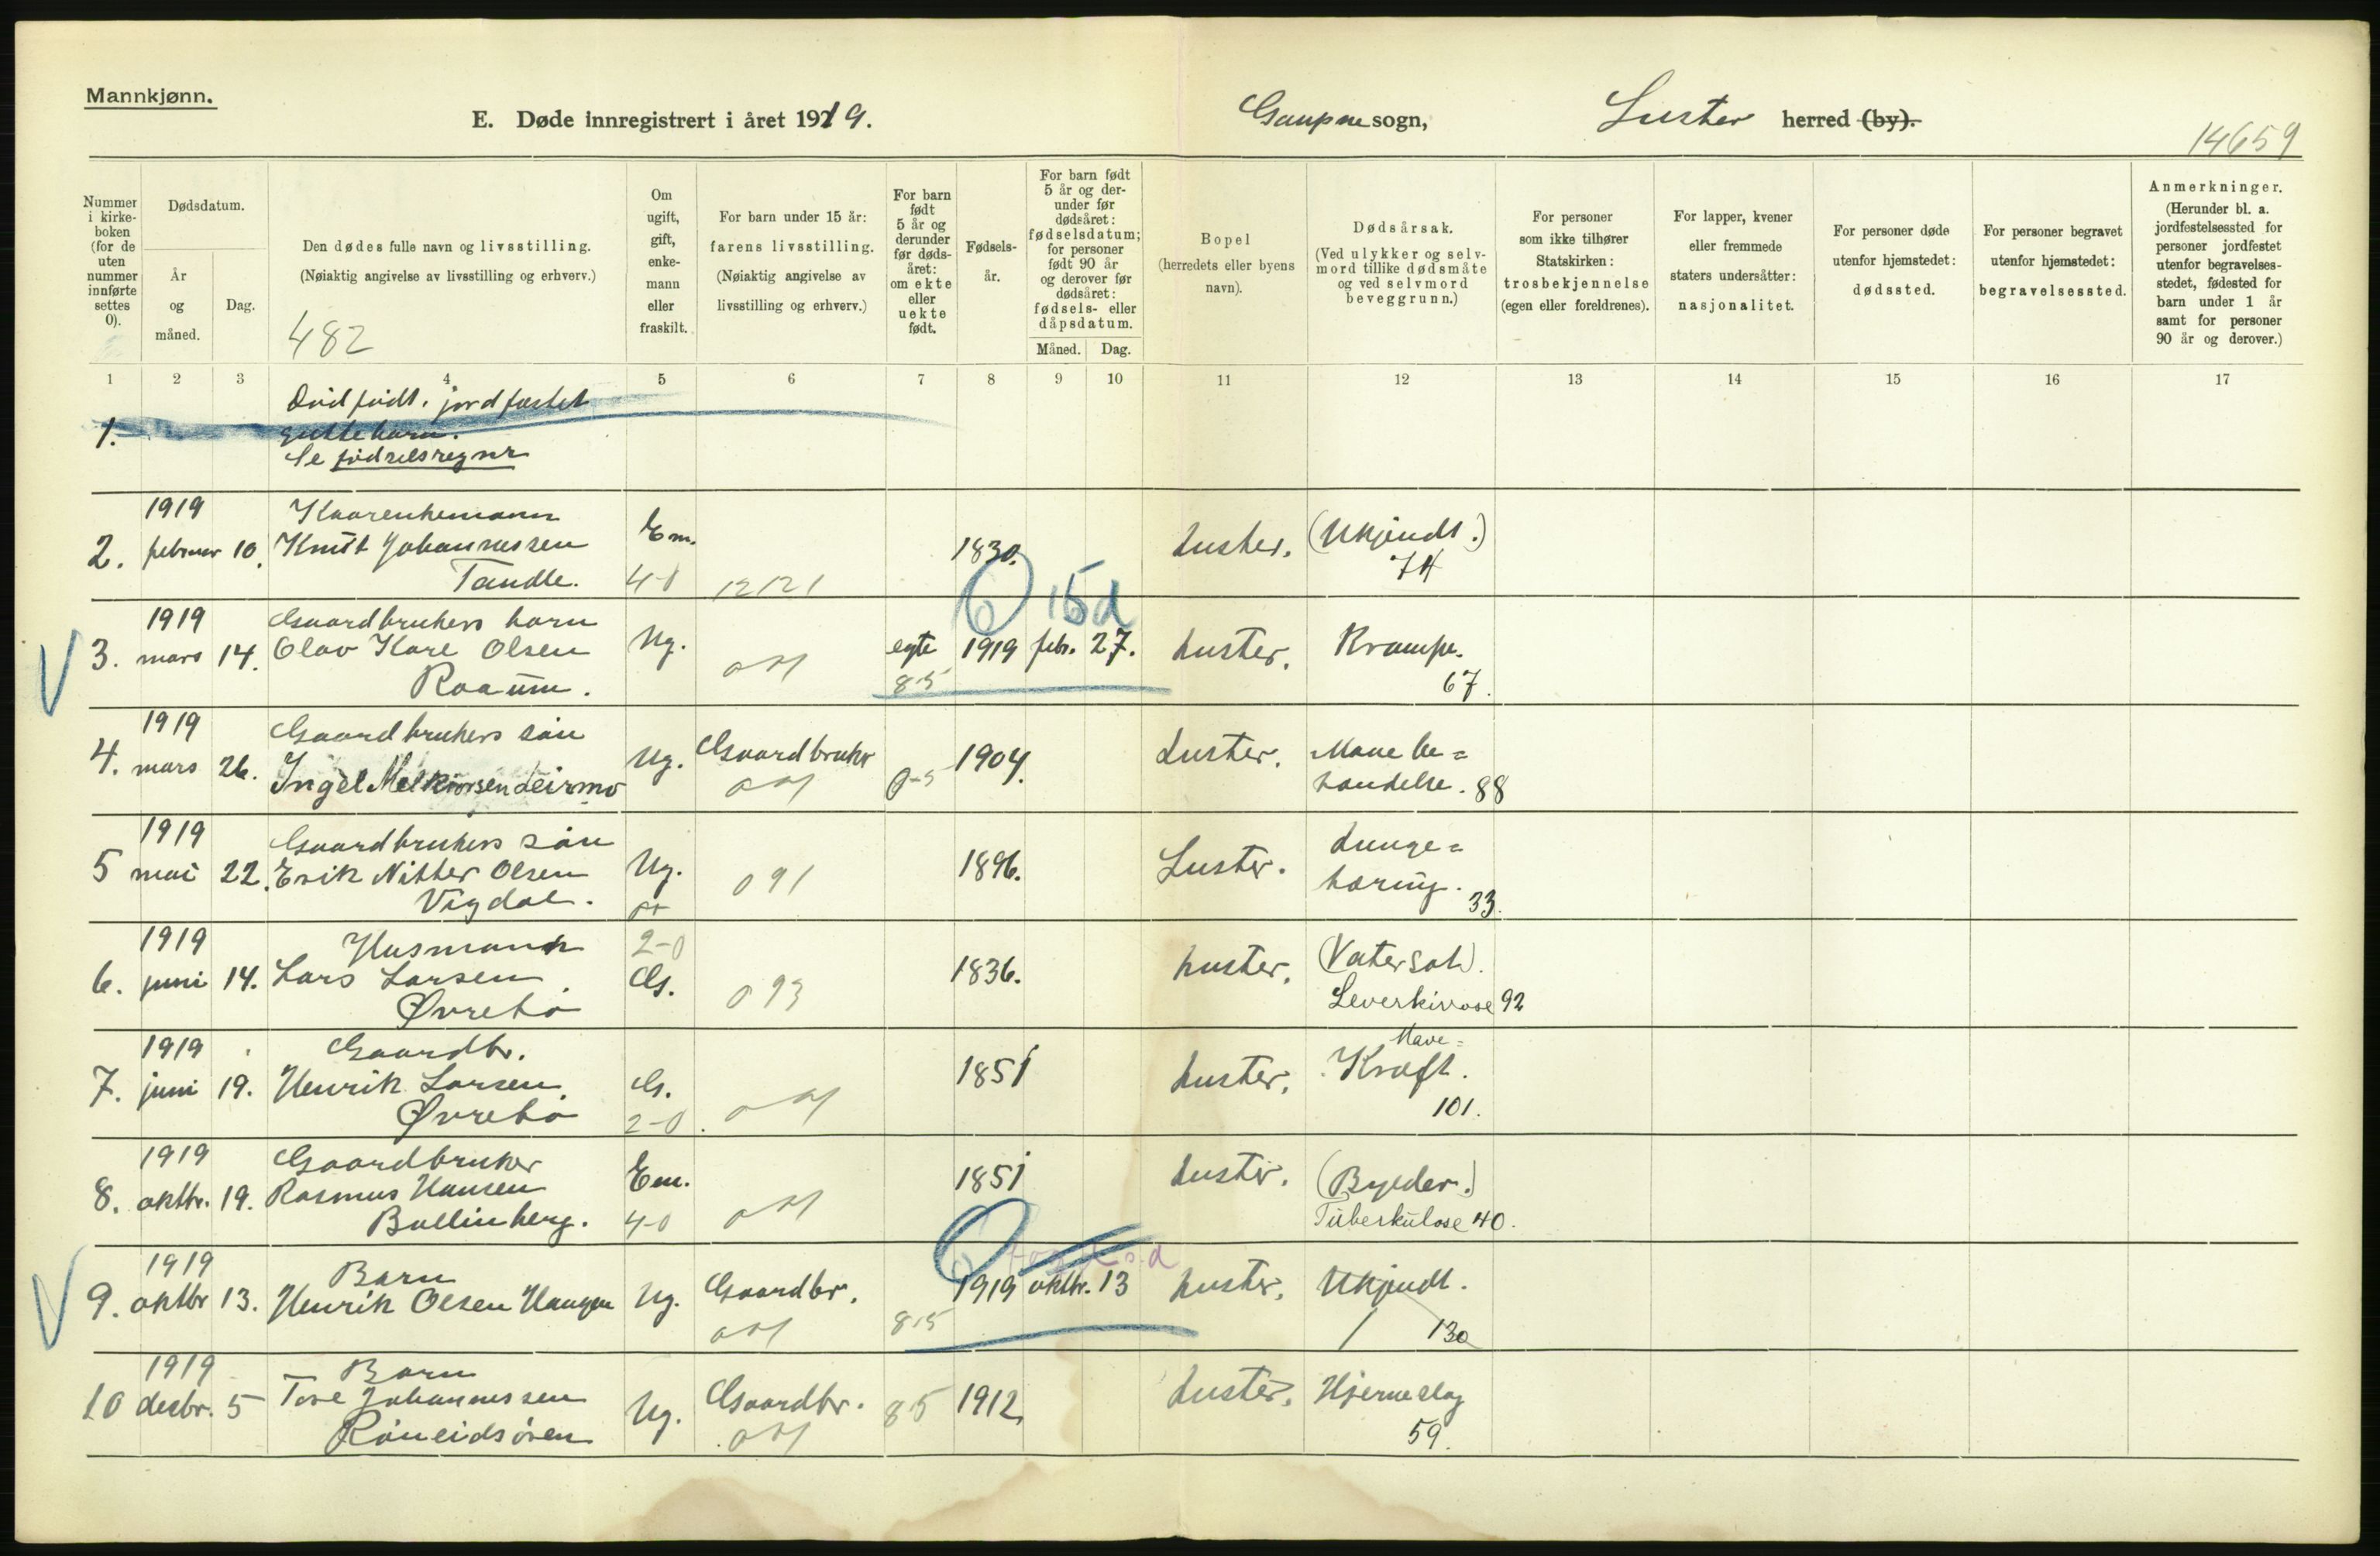 Mannkjønn.
E. Døde innregistrert i året 1919.
Gaupne sogn,
Luster herred (by).
14659
Nummer i kirke- boken (for de uten nummer innførte settes 0).
Dødsdatum.
År og måned.
Dag.
Den dødes fulle navn og livsstilling.
(Nøiaktig angivelse av livsstilling og erhverv.)
482
Om ugift, gift, enke- mann eller fraskilt.
For barn under 15 år: farens livsstilling.
(Nøiaktig angivelse av livsstilling og erhverv.)
For barn født 5 år og derunder før døds- året: om ekte eller uekte født.
Fødsels- år.
For barn født 5 år og der- under før dødsåret: fødselsdatum; for personer født 90 år og derover før dødsåret: fødsels- eller dåpsdatum.
Måned. Dag.
Bopel (herredets eller byens navn).
Dødsårsak.
(Ved ulykker og selv- mord tillike dødsmåte og ved selvmord beveggrunn.)
For personer som ikke tilhører Statskirken: trosbekjennelse (egen eller foreldrenes).
For lapper, kvener eller fremmede staters undersåtter: nasjonalitet.
For personer døde utenfor hjemstedet: dødssted.
For personer begravet utenfor hjemstedet: begravelsessted.
Anmerkninger.
(Herunder bl. a. jordfestelsessted for personer jordfestet utenfor begravelses- stedet, fødested for barn under 1 år samt for personer 90 år og derover.)
1 2 3 4 5 6 7 8 9 10 11 12 13 14 15 16 17
Dødfødt. jordfæstet
1. guttebarn.
Se fødselsregnr
1919 Kaarenkemann
2. februar 10. Knut Johannessen Em. 1830. Luster. (Ukjendt.)
Tandle. 4-0 12121 74
6 15d
1919 Gaardbrukers barn
3. mars 14. Olav Kare Olsen Ug. egte 1919 febr. 27. Luster. Krampe.
Raaum. 85 67.
1919 Gaardbrukers søn
4. mars 26. Ingel Melkiorsen Leirmo Ug. Gaardbruker 0-5 1904. Luster. Mave be=
handelse. 88
1919 Gaardbrukers søn
5 mai 22. Erik Nitter Olsen Ug. 091 1896. Luster. Lunge=
Vigdal. tæring. 33.
1919 Husmann 2-0
6. juni 14. Lars Larsen G. 093 1836. Luster. (Vatersot).
Øvrebø Leverkirrose 92
1919 Gaardbr. Mave=
7. juni 19. Henrik Larsen G. 1851 Luster. Kræft.
Øvrebø 2-0. 101.
1919 Gaardbruker
8. oktbr. 19. Rasmus Hansen Em. 1851 Luster. (Bylder.)
Bollinberg. 4-0 Tuberkulose 40.
1919 Barn 6
9. oktbr 13. Henrik Olsen Haugen Ug. Gaardbr. 85 1919 oktbr. 13 Luster. Ukjendt.
130
1919 Barn
10 desbr. 5 Tore Johannessen Ug. Gaardbr. 85 1912. Luster. Hjerneslag
Røneidsøren 59.